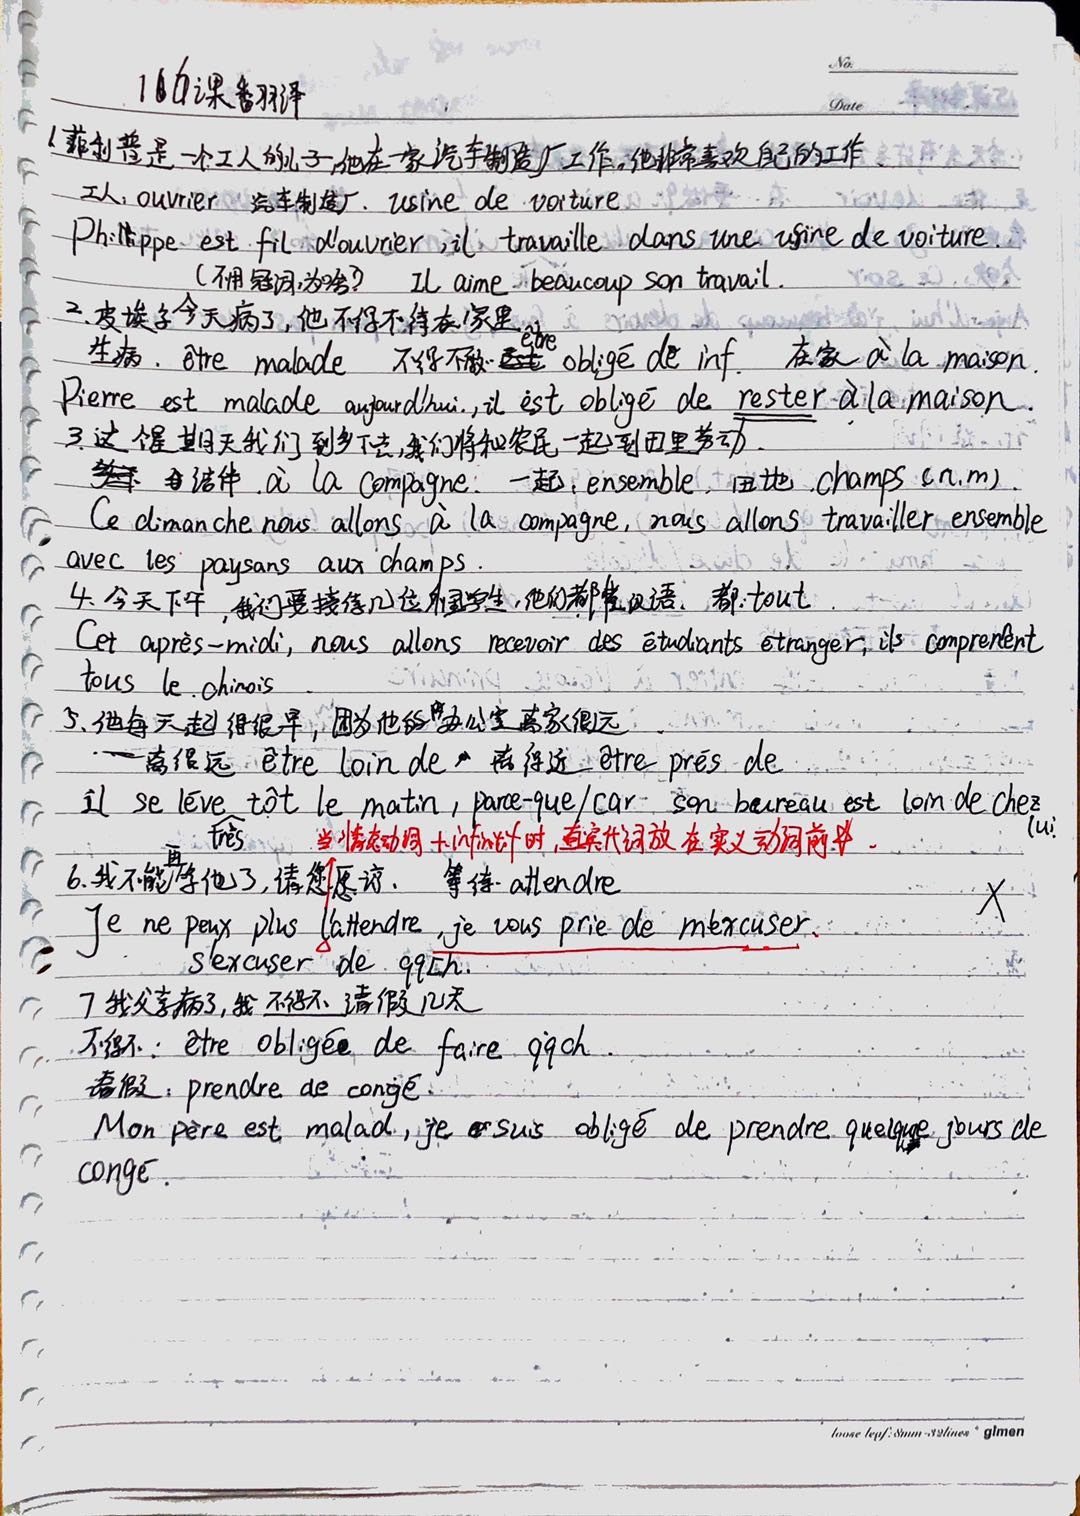 No.
16课翻译
Date
1.菲利普是一个工人的儿子,他在一家汽车制造厂工作,他非常喜欢自己的工作
工人: ouvrier 汽车制造厂. usine de voiture
Philippe est fil d'ouvrier, il travaille dans une usine de voiture.
(不用冠词,为啥?) Il aime beaucoup son travail.
2.皮埃尔今天病了,他不得不待在家里.
生病. être malade 不得不做. être obligé de inf. 在家 à la maison.
Pierre est malade aujourd'hui., il est obligé de rester à la maison.
3.这个星期天我们到乡下去,我们将和农民一起到田里劳动.
à la compagne: 一起: ensemble, 田地. champs (n.m).
Ce dimanche nous allons à la compagne, nous allons travailler ensemble
avec les paysans aux champs.
4.今天下午,我们要接待几位外国学生,他们都懂汉语. 都:tout
Cet après-midi, nous allons recevoir des étudiants étranger, ils comprenent
tous le chinois
5.他每天起得很早,因为他的办公室离家很远.
离很远 être loin de 离得近 être prés de
il se léve tôt le matin, parce-que/car son baureau est loin de chez
lui
très 当情态动词+infinitif时,直宾代词放在实义动词前.
6.我不能再等他了,请您原谅. 等待. attendre
X
Je ne peux plus l'attendre, je vous prie de m'excuser.
s'excuser de qqch.
7 我父亲病了,我不得不请假几天
不得不: être obligée de faire qqch.
请假: prendre de congé.
Mon père est malad, je suis obligé de prendre quelque jours de
congé.
loose leaf: 8mm-32lines * glmen